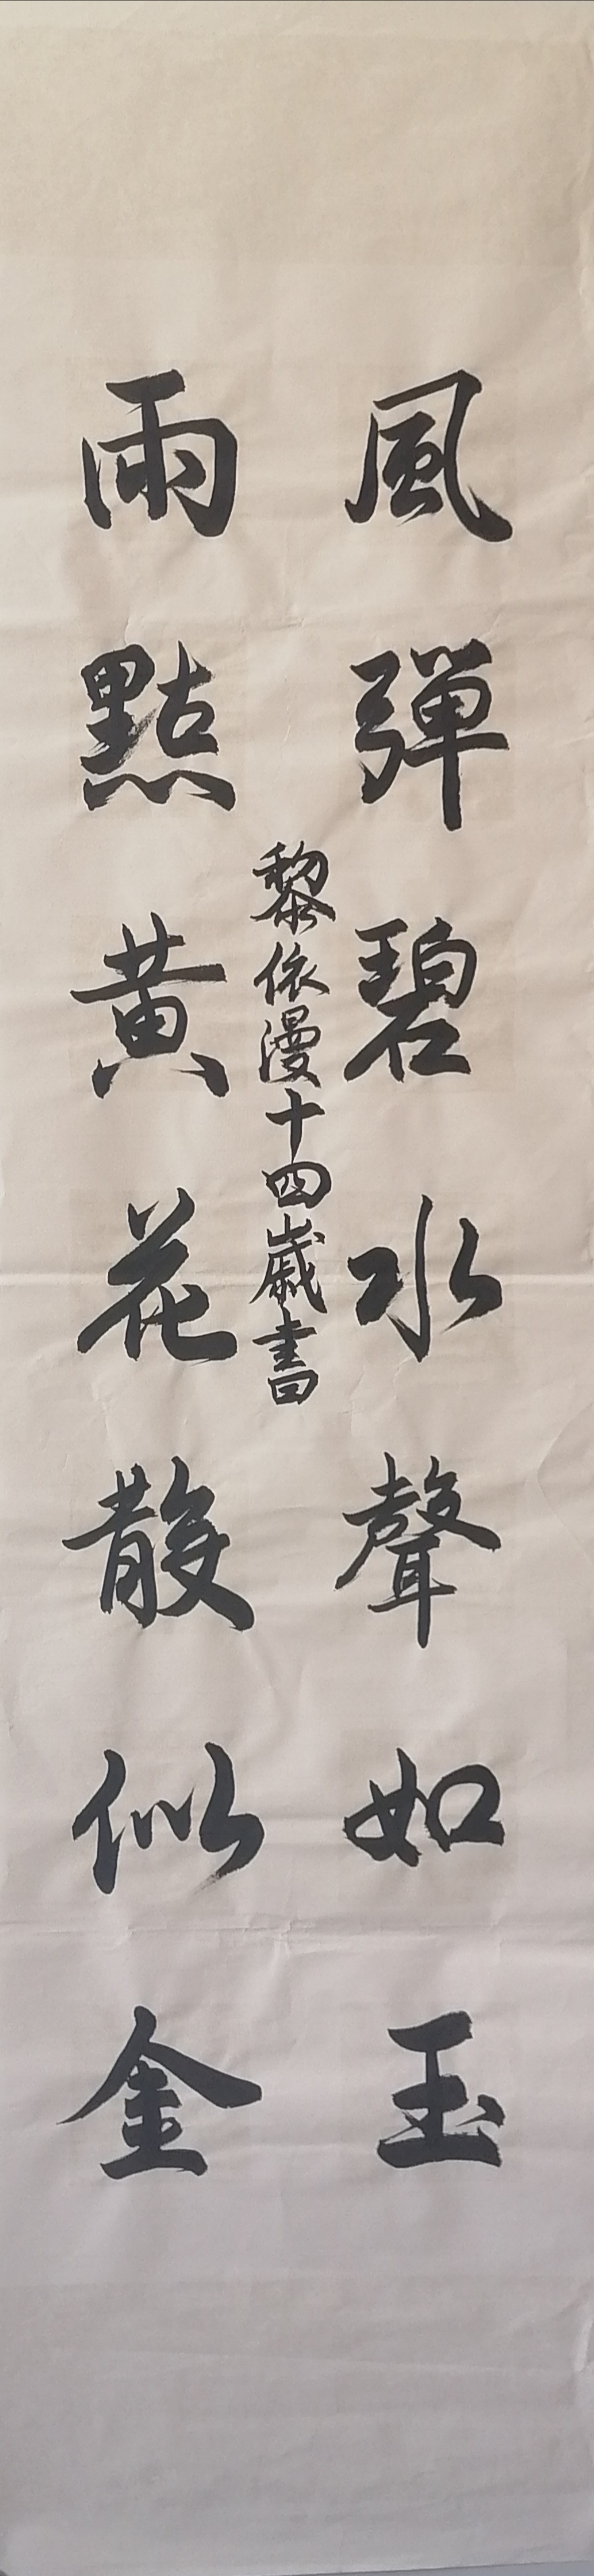 風彈碧水聲如玉
雨點黃花散似金
黎依漫十四歲書